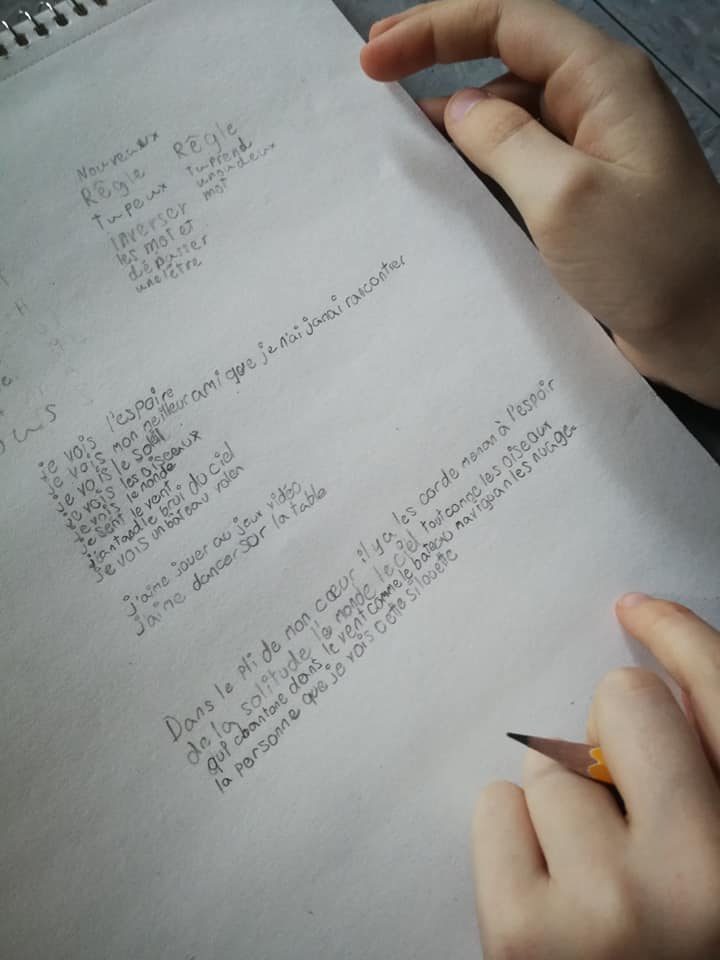 Nouveaux
Règle
tu peux
inverser
les mot et
dépasser
une lètre
Règle
tu prend
un ou deux
mot
je vois l'espoire
je vois mon meilleur ami que je n'ai janai rancontrer
je vois le soleil
je vois les oiseaux
je vois le monde
je sent le vent
j'antand le brui du ciel
je vois un bateau voler
j'aime jouer au jeux vidéo
j'aime dancer sur la table
Dans le pli de mon cœur il y a les corde menan à l'espoir
de la solitude le monde le ciel tout comme les oiseaux
qui chantane dans le vent comme le bateau naviguan les nuage
la personne que je vois cette silouette